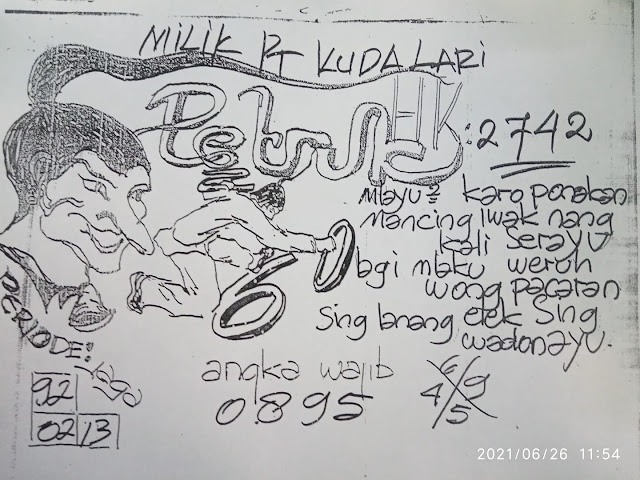 MILIK PT KUDA LARI
Petruk HK : 2742
mlayu2 karo ponakan
Mancing iwak nang
kali Serayu
bgi mbku weruh
wong pacaran
Sing lanang elek Sing
wadon ayu.
PERIODE:
60
angka wajib
0895
92
02 13
6 9
4 5
2021/06/26 11:54